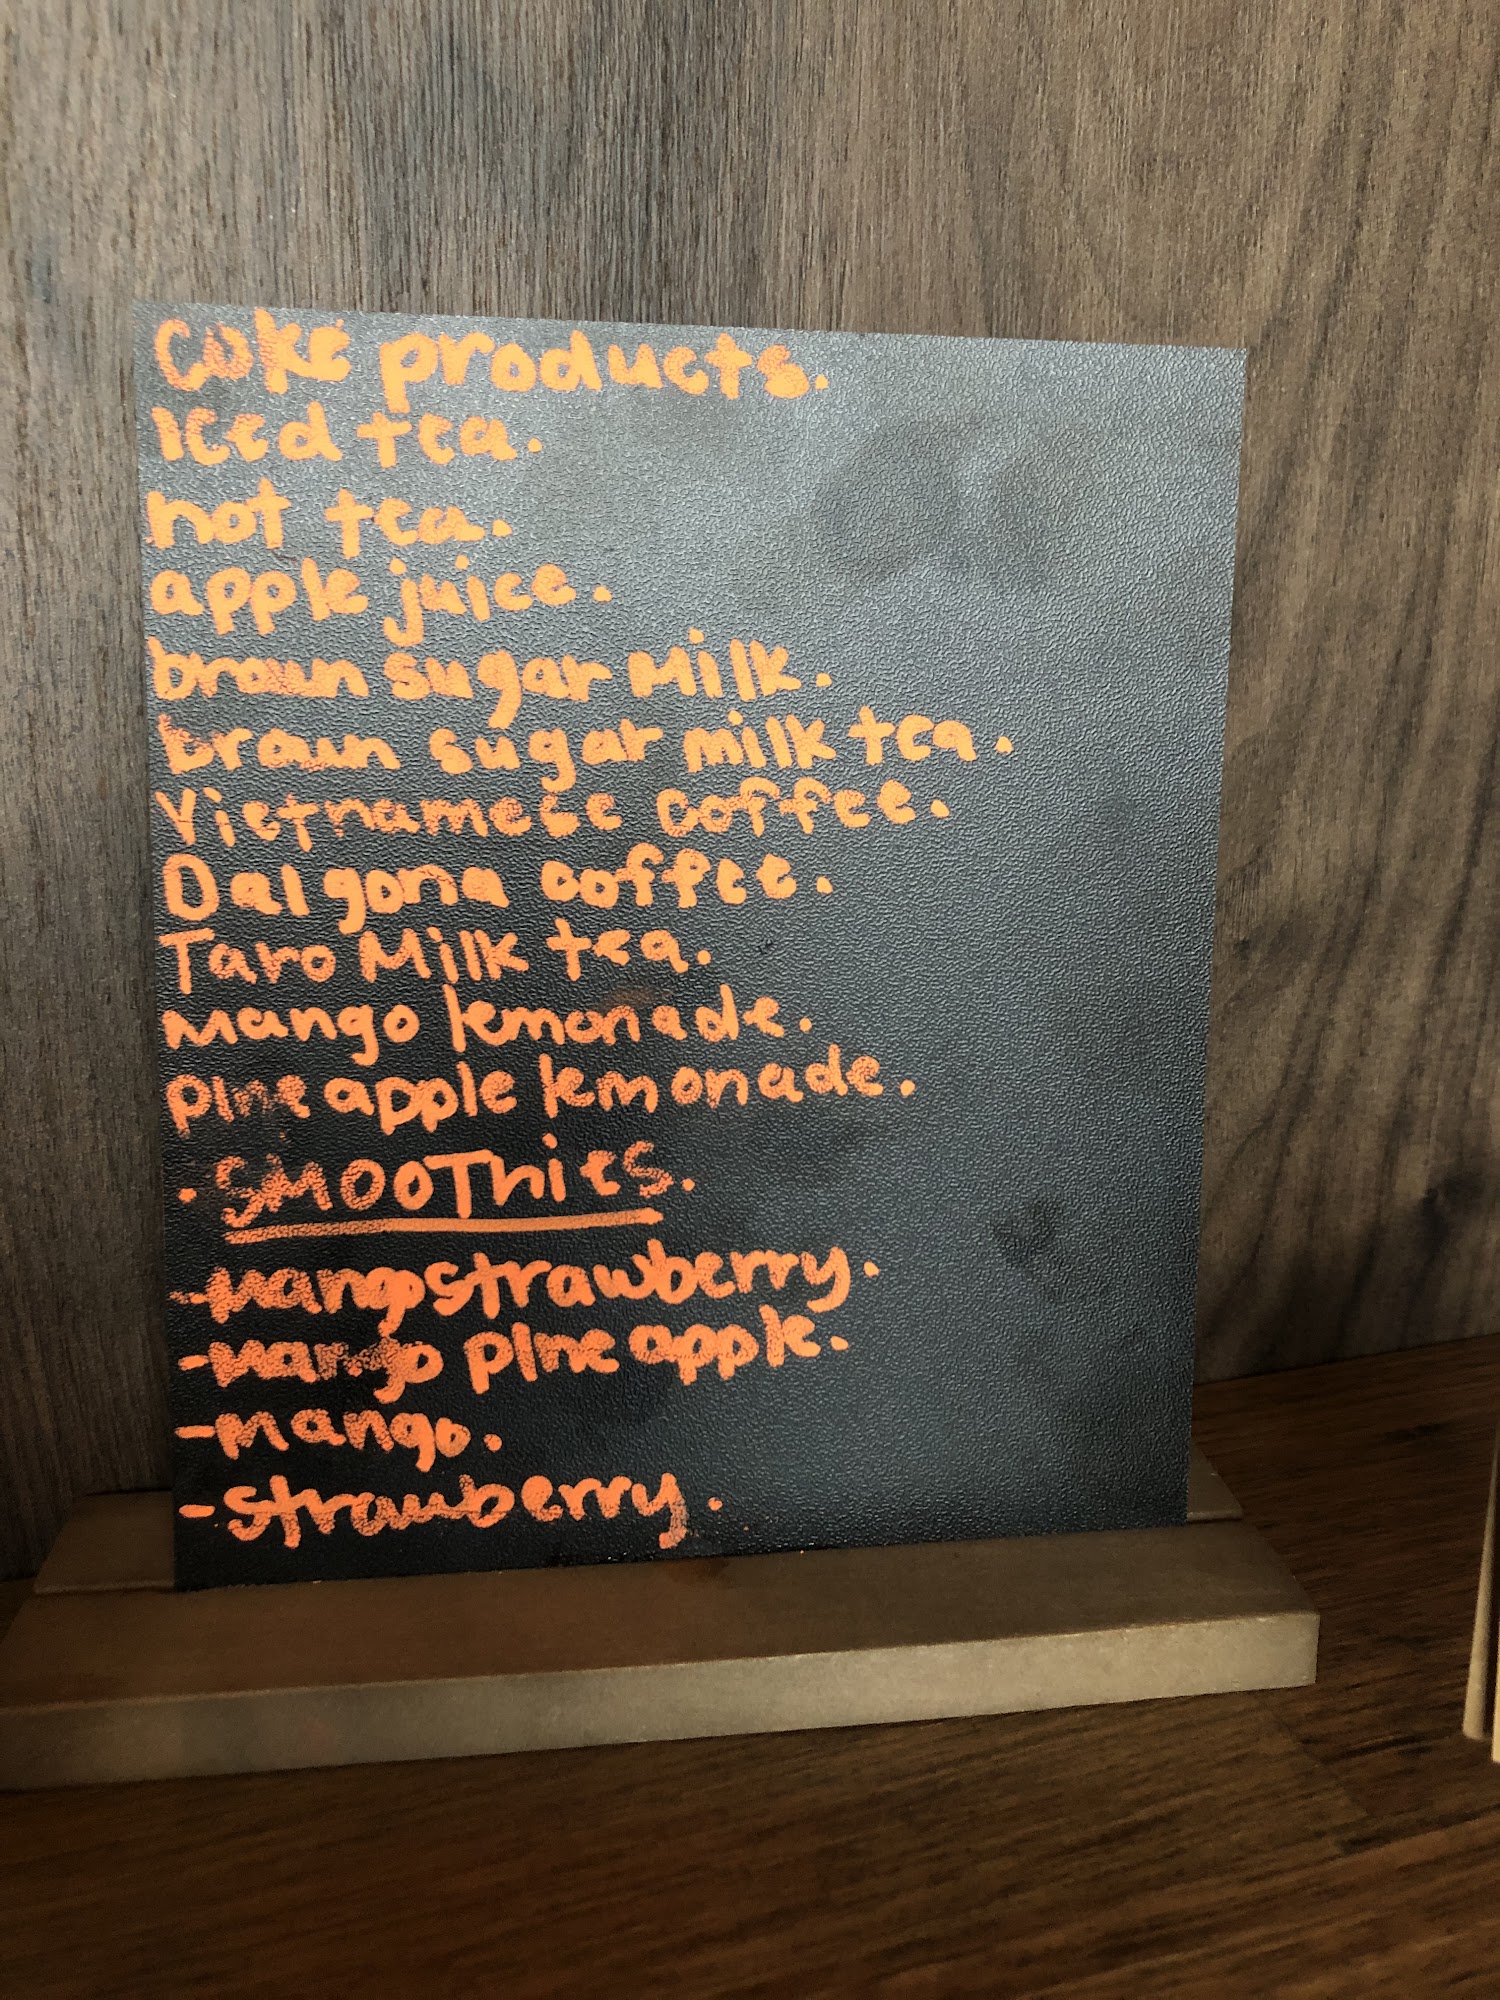 Coke products.
Iced tea.
hot tea.
apple juice.
braun sugar Milk.
braun sugar milk tea.
Vietnamese coffee.
Dalgona coffee.
Taro Milk tea.
Mango lemonade.
pineapple lemonade.
• SMOOThies.
-mango strawberry.
-mango pineapple.
-mango.
-strawberry.